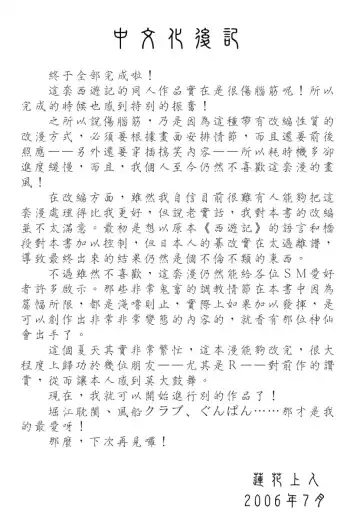 中文化後記
終于全部完成啦！
這套西遊記的同人作品實在是很傷腦筋呢！所以
完成的時候也感到特別的振奮！
之所以說傷腦筋，乃是因為這種帶有改編性質的
改漫方式，必須要根據畫面安排情節，而且還要前後
照應——另外還要穿插搞笑內容——所以耗時幾多卻
進度緩慢，而且，我個人至今仍然不喜歡這套漫的畫
風！
在改編方面，雖然我自信目前很難有人能夠把這
套漫處理得比我更好，但說老實話，我對本書的改編
至不太滿意。最初是想以原本《西遊記》的語言和橋
段對本書加以控制，但日本人的篡改實在太過離譜，
導致最終出來的結果仍然是個不倫不類的東西。
不過雖然不喜歡，這套漫仍然能給各位SM愛好
者許多啟示。那些非常鬼畜的調教情節在本書中因為
篇幅所限，都是淺嚐則止，實際上如果加以發揮，是
可以創作出非常非常變態的內容的，就看有那位神仙
會出手了。
這個夏天其實非常繁忙，這本漫能夠改完，很大
程度上歸功於幾位朋友——尤其是R——對前作的讚
賞，從而讓本人感到莫大鼓舞。
現在，我就可以開始進行別的作品了！
堀江耽閨、風船クラブ、ぐんぱん……那才是我
的最愛呀！
那麼，下次再見囉！
蓮花上人
2006年7月